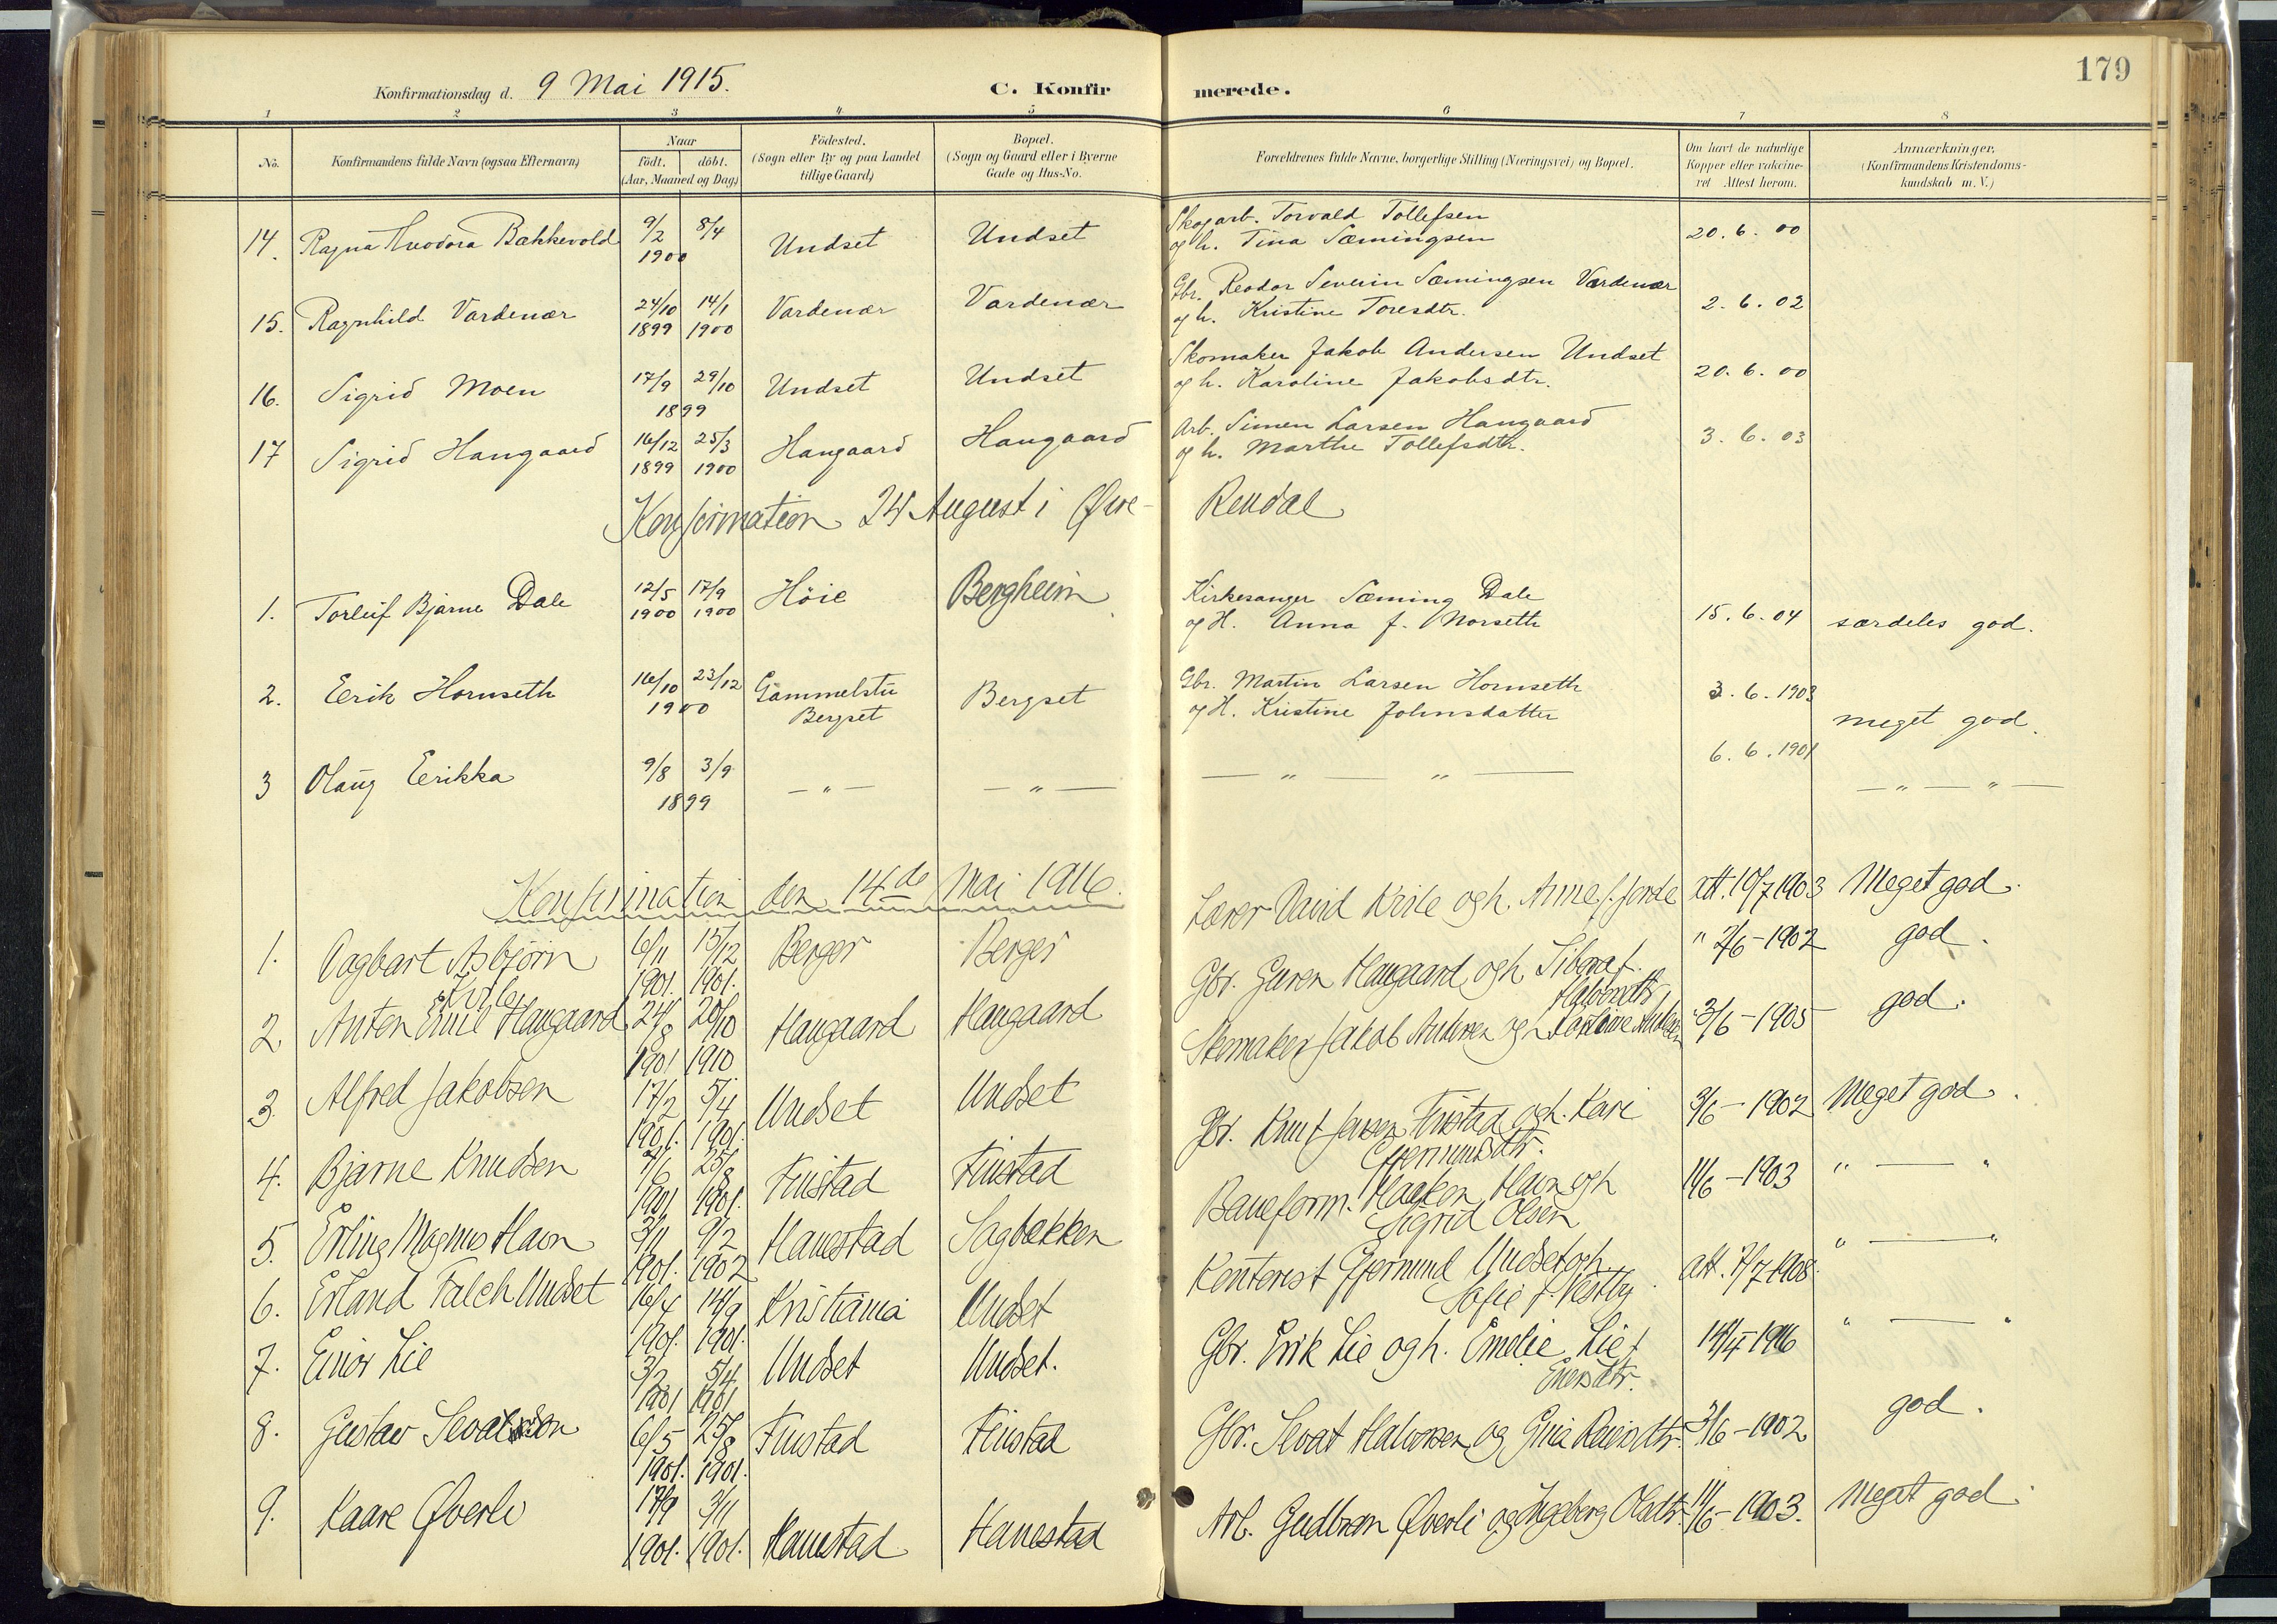 179
Konfirmationsdag d. 9 Mai 1915.
C. Konfirmerede.
1 2 3 4 5 6 7 8
No. Konfirmandens fulde Navn (ogsaa Efternavn) Naar født. døbt. (Aar, Maaned og Dag) Fødested. (Sogn eller By og paa Landet tillige Gaard) Bopæl. (Sogn og Gaard eller i Byerne Gade og Hus-No. Forældrenes fulde Navne, borgerlige Stilling (Næringsvei) og Bopæl. Om havt de naturlige Kopper eller vakcineret Attest herom. Anmærkninger. (Konfirmandens Kristendomskundskab m. V.)
14. Ragna Theodora Bakkevold 9/2 1900 8/4 Undset Undset Skogarb. Torvald Tollefsen og h. Tina Sæmingsen 20.6.00
15. Ragnhild Vardenær 24/10 1899 14/1 1900 Vardenær Vardenær Gbr. Reodor Severin Sæmingsen Vardenær og h. Kristine Toresdtr. 2.6.02
16. Sigrid Moen 17/9 29/10 1899 Undset Undset Skomaker Jakob Andersen Undset og h. Karoline Jakobsdtr. 20.6.00
17 Sigrid Haugaard 16/12 1899 25/3 1900 Haugaard Haugaard Arb. Simen Larsen Haugaard og h. Marthe Tollefsdtr. 3.6.03
Konfirmation 24 August i Øvre- Rendal
1. Torleif Bjarne Dale 12/5 1900 17/9 1900 Høie Bergheim Kirkesanger Sæming Dale og H. Anna f. Norseth 15.6.04 særdeles god.
2. Eerik Hornseth 16/10 23/12 1900 Gammelstu Bergset Bergset Gbr. Martin Larsen Hornseth og H. Kristine Johnsdatter 3.6.1903 meget god.
3 Olaug Eerikka 9/8 3/9 1899 — " — — " — — " — " — 6.6.1901 — " — " —
Konfirmation den 14de Mai 1916.
1. Dagbart Asbjørn Kvile 6/11 1901. 15/12 1901. Berger Berger Lærer David Kvile og h. Anne f. Jorde att. 10/7 1903 Meget god.
2. Anton Emil Haugaard 24/8 1901 20/10 1910 Haugaard Haugaard Gbr. Haugaard og h. Halvorsdtr. " 2/6-1902 god.
3. Alfred Jakobsen 17/2 1901. 5/4 1901. Undset Undset Skomaker Jakob Andersen og h. Karoline 3/6-1905 god.
4. Bjarne Knudsen 7/6 1901 25/8 1901. Finstad Finstad Gbr. Knut Finstad og h. Kari Gjermundsdtr. 3/6-1902 Meget god.
5. Erling Magnus Havn 3/11 1901. 9/2 1902 Hanestad Sagbakken Baneform. Haakon Havn og h Sigrid Olsen 11/6-1903 " — "
6. Erland Falch Undset 16/4 1901. 14/9 1901. Kristiania Undset Kontorist Gjermund Undset og h. Sofie f. Vestby. att. 7/7 1908. " — "
7. Einar Lie 3/2 1901 5/4 1901 Undset Undset. Gbr. Erik Lie og h. Emelie Lie f. Einersdtr. 14/4-1916 " — "
8. Gustav Sevatson 6/5 1901. 25/8 1901. Finstad Finstad Gbr. Sevat Halvorsen og Gina 3/6-1902 god.
9. Kaare Øverli 17/9 1901. 3/11 1901. Hanestad Hanestad Arb. Gudbran Øverli og Ingeborg Olsdtr. 11/6-1903. Meget god.